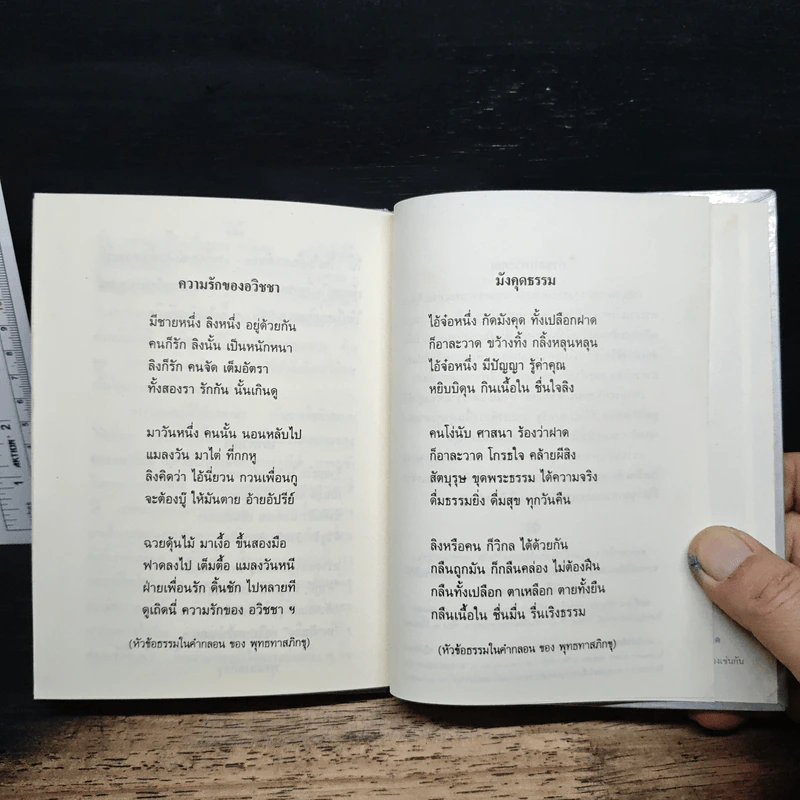 ความรักของอวิชชา
มีชายหนึ่ง ลิงหนึ่ง อยู่ด้วยกัน
คนก็รัก ลิงนั้น เป็นหนักหนา
ลิงก็รัก คนจัด เต็มอัตรา
ทั้งสองรา รักกัน นั้นเกินดู
มาวันหนึ่ง คนนั้น นอนหลับไป
แมลงวัน มาไต่ ที่กกหู
ลิงคิดว่า ไอ้นี่ยวน กวนเพื่อนกู
จะต้องบู๊ ให้มันตาย อ้ายอัปรีย์
ฉวยดุ้นไม้ มาเงื้อ ขึ้นสองมือ
ฟาดลงไป เต็มตื้อ แมลงวันหนี
ฝ่ายเพื่อนรัก ดิ้นชัก ไปหลายที
ดูเถิดนี่ ความรักของ อวิชชา ฯ
(หัวข้อธรรมในคำกลอน ของ พุทธทาสภิกขุ)
มังคุดธรรม
ไอ้จ๋อหนึ่ง กัดมังคุด ทั้งเปลือกฝาด
ก็อาละวาด ขว้างทิ้ง กลิ้งหลุนหลุน
ไอ้จ๋อหนึ่ง มีปัญญา รู้ค่าคุณ
หยิบบิดุน กินเนื้อใน ชื่นใจลิง
คนโง่งับ ศาสนา ร้องว่าฝาด
ก็อาละวาด โกรธใจ คล้ายผีสิง
สัตบุรุษ ขุดพระธรรม ได้ความจริง
ดื่มธรรมยิ่ง ดื่มสุข ทุกวันคืน
ลิงหรือคน ก็วิกล ได้ด้วยกัน
กลืนถูกมัน ก็กลืนคล่อง ไม่ต้องฝืน
กลืนทั้งเปลือก ตาเหลือก ตายทั้งยืน
กลืนเนื้อใน ชื่นมื่น รื่นเริงธรรม
(หัวข้อธรรมในคำกลอน ของ พุทธทาสภิกขุ)